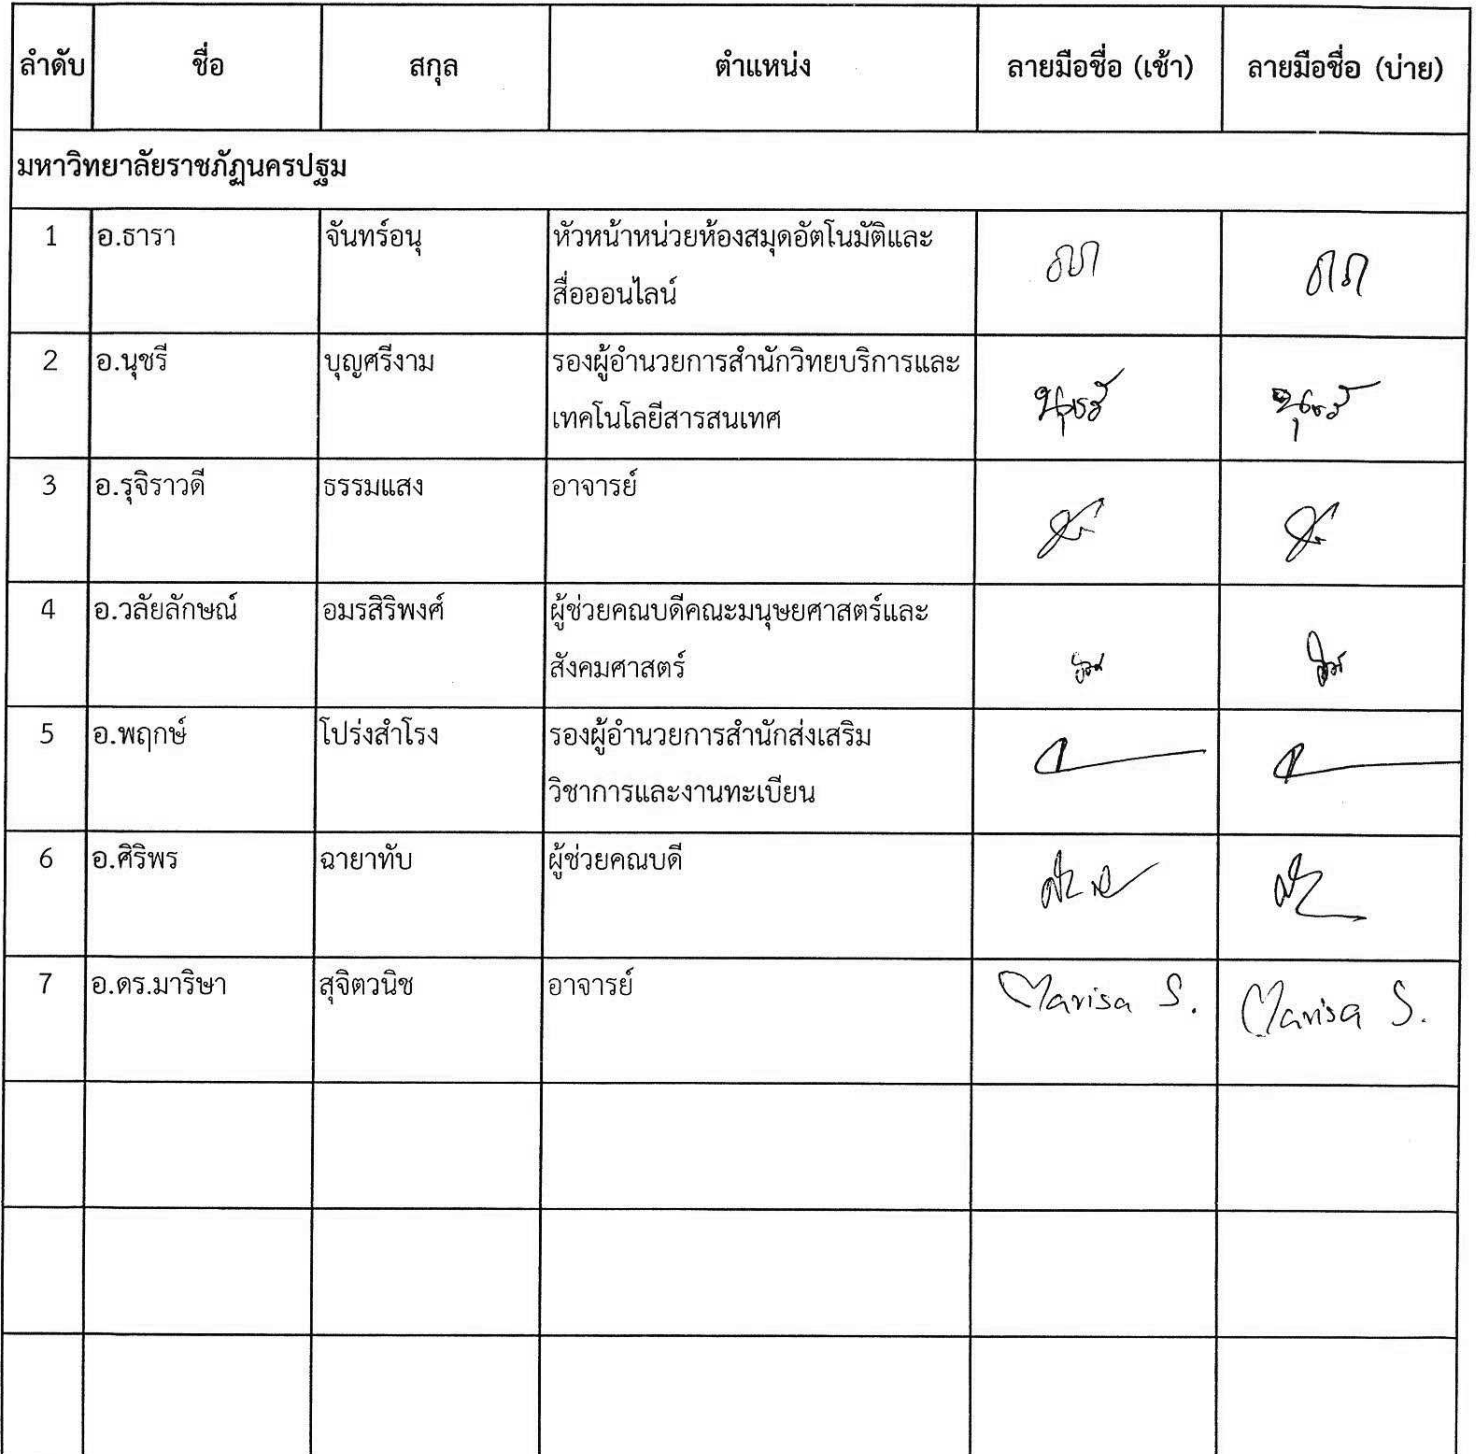 ลำดับ ชื่อ สกุล ตำแหน่ง ลายมือชื่อ (เช้า) ลายมือชื่อ (บ่าย)
มหาวิทยาลัยราชภัฏนครปฐม
1 อ.ธารา จันทร์อนุ หัวหน้าหน่วยห้องสมุดอัตโนมัติและ
สื่อออนไลน์
2 อ.นุชรี บุญศรีงาม รองผู้อำนวยการสำนักวิทยบริการและ
เทคโนโลยีสารสนเทศ
นุชรี นุชรี
3 อ.รุจิราวดี ธรรมแสง อาจารย์
4 อ.วลัยลักษณ์ อมรสิริพงศ์ ผู้ช่วยคณบดีคณะมนุษยศาสตร์และ
สังคมศาสตร์
5 อ.พฤกษ์ โปร่งสำโรง รองผู้อำนวยการสำนักส่งเสริม
วิชาการและงานทะเบียน
6 อ.ศิริพร ฉายาทับ ผู้ช่วยคณบดี
7 อ.ดร.มาริษา สุจิตวนิช อาจารย์ Marisa S. Marisa S.